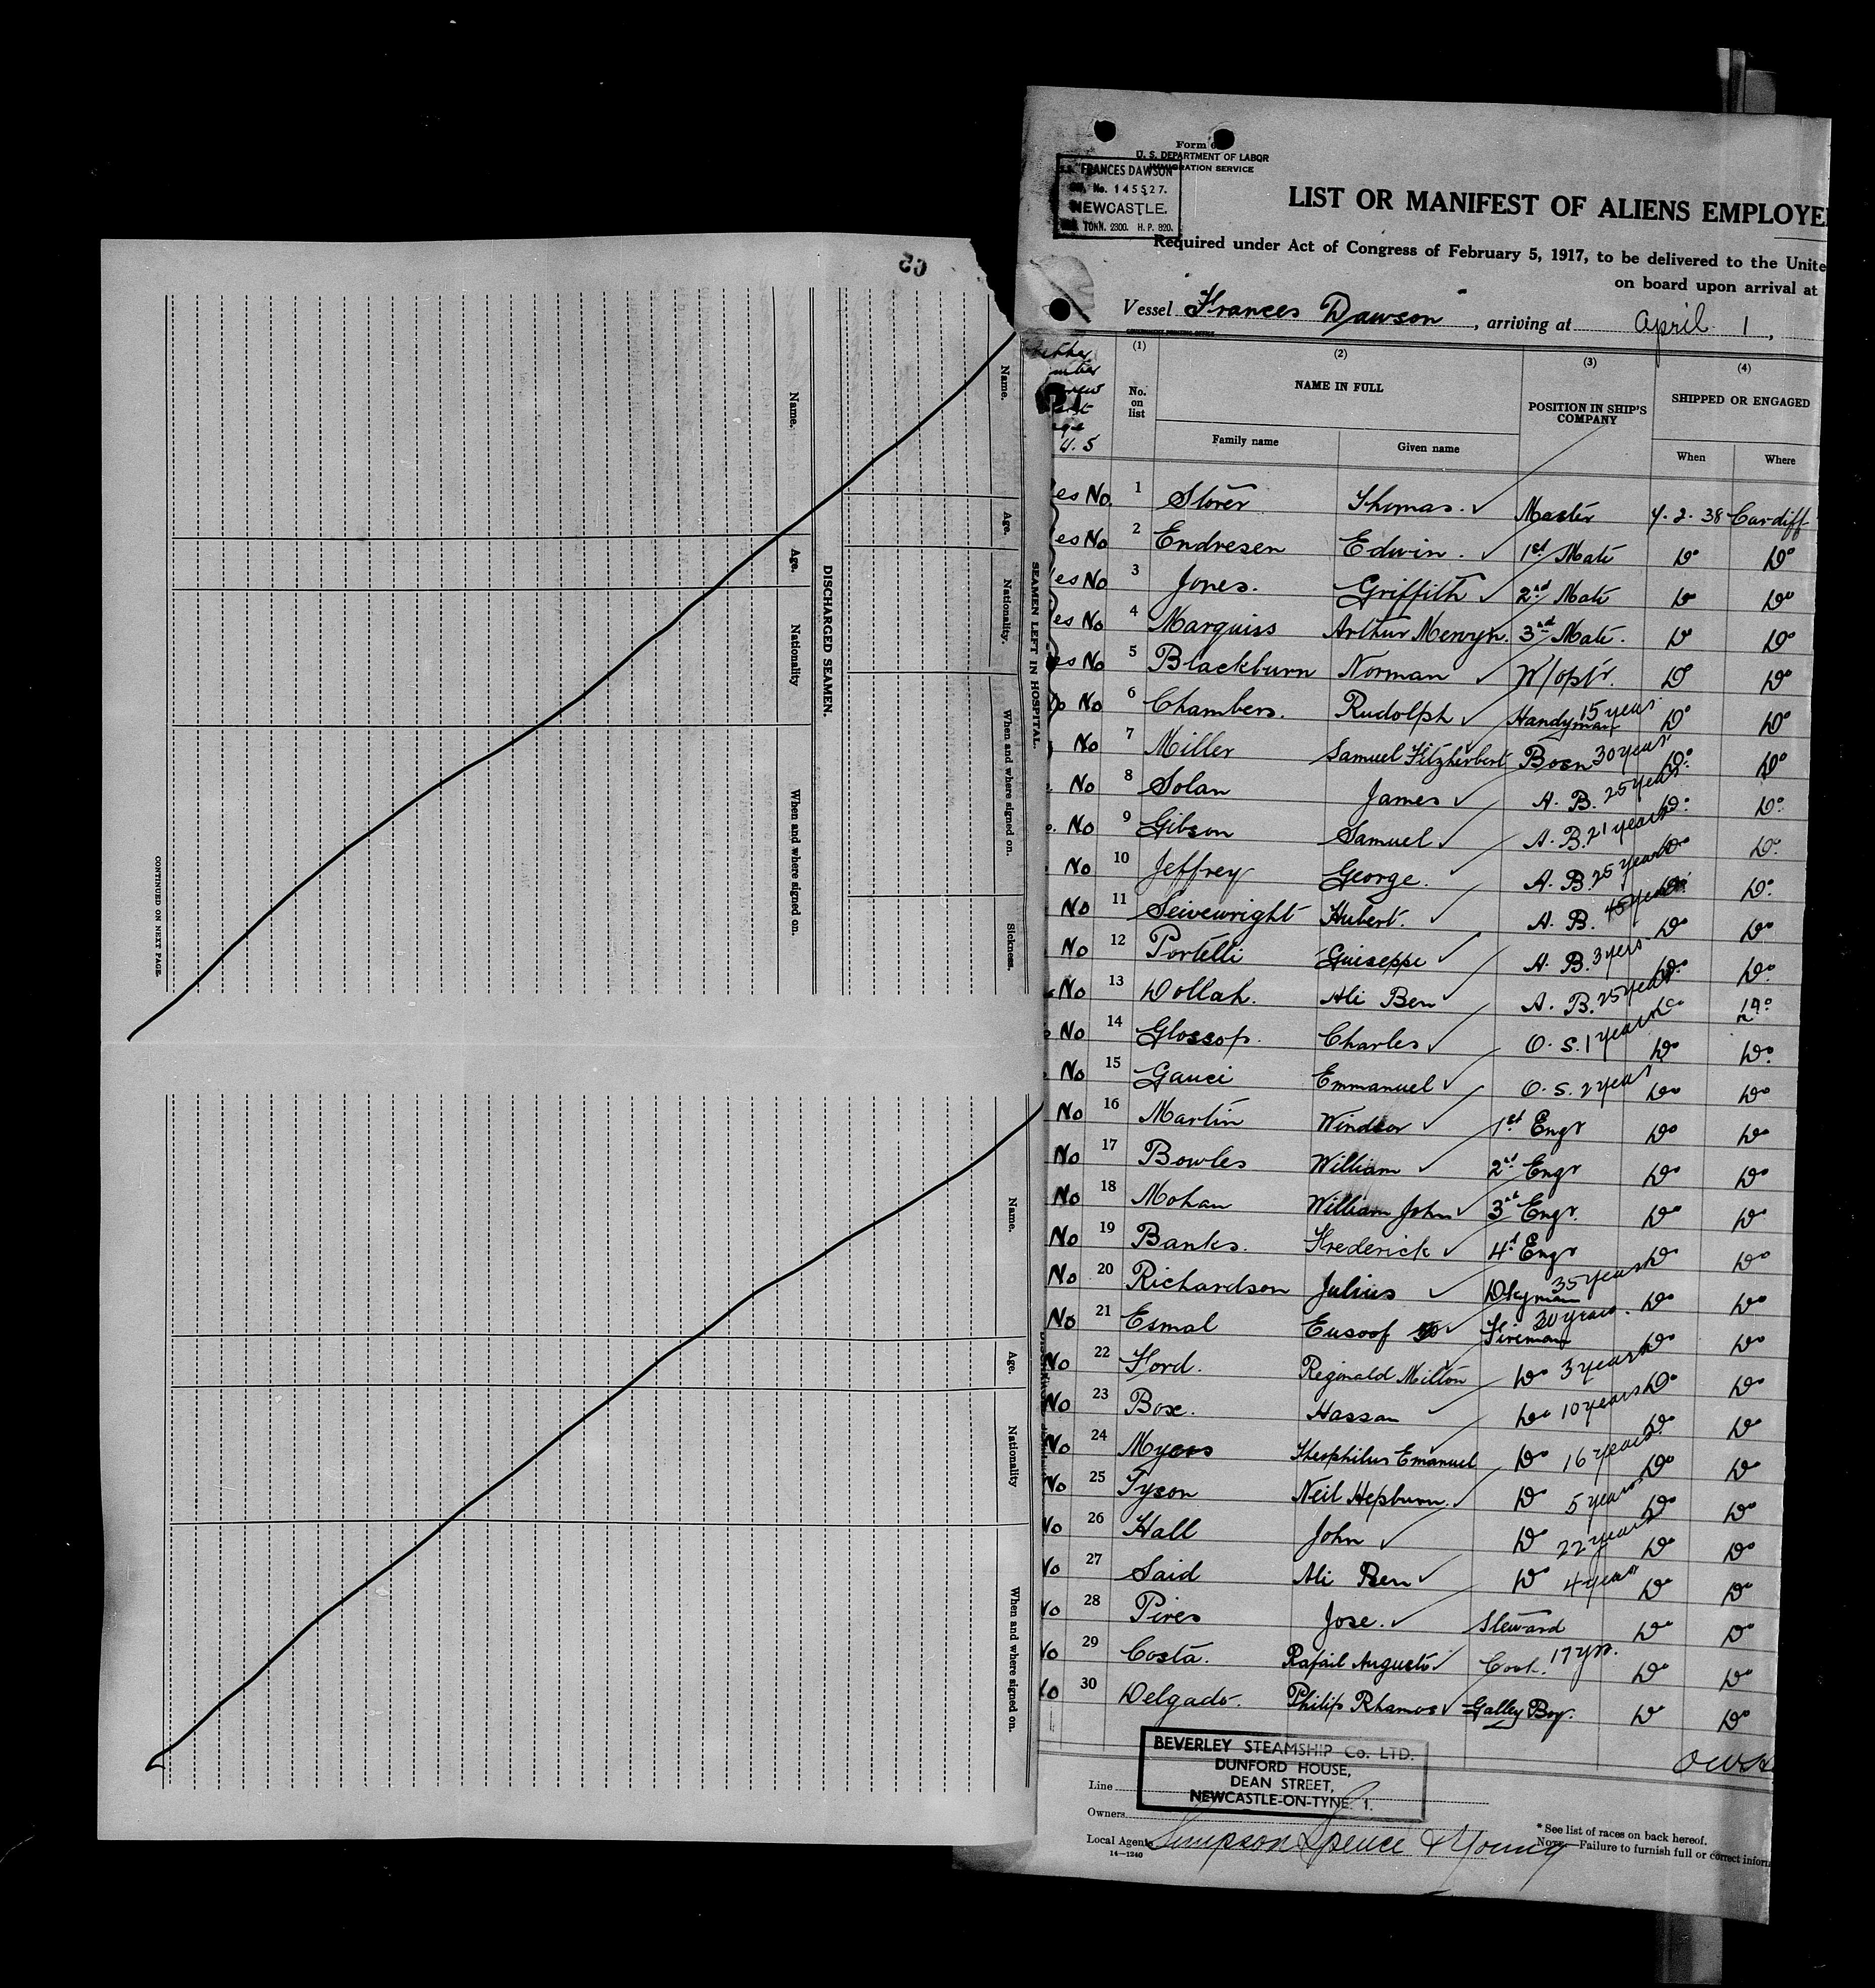 Name.
Age.
Nationality.
When and where signed on.
Sickness.
SEAMEN LEFT IN HOSPITAL.
DISCHARGED SEAMEN.
Name.
Age.
Nationality
When and where signed on.
CONTINUED ON NEXT PAGE.
Name.
Age.
Nationality
When and where signed on.
Form
U. S. DEPARTMENT OF LABOR
IMMIGRATION SERVICE
S.S. "FRANCES DAWSON"
No. 145527.
NEWCASTLE.
TONN. 2300. H. P. 320.
LIST OR MANIFEST OF ALIENS EMPLOYE
Required under Act of Congress of February 5, 1917, to be delivered to the Unite
on board upon arrival at
Vessel "Frances Dawson", arriving at April 1,
GOVERNMENT PRINTING OFFICE
(1) (2) (3) (4)
No. on list
NAME IN FULL
POSITION IN SHIP'S COMPANY
SHIPPED OR ENGAGED
Family name Given name When Where
U.S
es No. 1 Storer Thomas. Master 4. 2. 38 Cardiff
es No 2 Endresen Edwin. 1st Mate Do Do
es No 3 Jones. Griffith 2nd Mate Do Do
es No 4 Marquiss Arthur Mervyn. 3rd Mate. Do Do
es No 5 Blackburn Norman W/optr. Do Do
No 6 Chambers. Rudolph Handyman 15 years Do Do
No 7 Miller Samuel Fitzherbert Bosn 30 years Do Do
No 8 Solan James A. B. 25 years Do Do
No 9 Gibson Samuel A. B. 21 years Do Do
No 10 Jeffrey George. A. B. 25 years Do Do
No 11 Seivewright Hubert. A. B. 45 years Do Do
No 12 Portelli Guiseppe A. B. 3 yers Do Do
No 13 Dollah. Ali Ben A. B. 25 years Do Do
No 14 Glossop. Charles O. S. 1 years Do Do
No 15 Gauci Emmanuel O. S. 2 years Do Do
No 16 Martin Windsor 1st Engr Do Do
No 17 Bowles William 2nd Engr Do Do
No 18 Mohan William John 3rd Engr. Do Do
No 19 Banks. Frederick 4th Engr Do Do
No 20 Richardson Julius Dkyman 35 years Do Do
No 21 Esmal Eusoof Fireman 20 years. Do Do
No 22 Ford. Reginald Milton Do 3 years Do Do
No 23 Box. Hassan Do 10 years Do Do
No 24 Myers Theophilus Emanuel Do 16 years Do Do
No 25 Tyson Neil Hepburn. Do 5 years Do Do
No 26 Hall John Do 22 years Do Do
No 27 Said Ali Ben Do 4 years Do Do
No 28 Pires Jose. Steward Do Do
No 29 Costa. Rafail Augusto Cook. 17 yrs. Do Do
No 30 Delgado. Philip Rhamos Galley Boy. Do Do
BEVERLEY STEAMSHIP Co. LTD.
DUNFORD HOUSE,
DEAN STREET,
NEWCASTLE-ON-TYNE. 1.
Line
Owners
Local Agents Simpson Spence & Young
14—1240
* See list of races on back hereof.
NOTE.—Failure to furnish full or correct inform